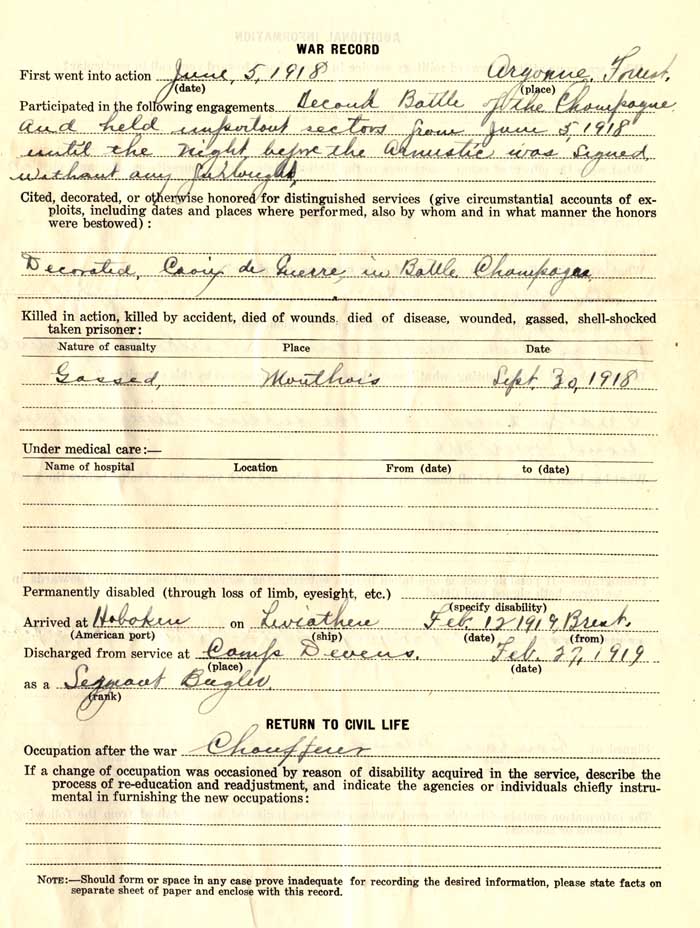 WAR RECORD
First went into action June, 5, 1918 Argonne, Forrest.
(date) (place)
Participated in the following engagements Second Battle of the Champagne
and held important sectors from June 5, 1918
until the night before the Armistic was signed,
without any furloughs,
Cited, decorated, or otherwise honored for distinguished services (give circumstantial accounts of ex-
ploits, including dates and places where performed, also by whom and in what manner the honors
were bestowed) :
Decorated, de Guerre, in Battle Champagne
Killed in action, killed by accident, died of wounds, died of disease, wounded, gassed, shell-shocked
taken prisoner:
Nature of casualty Place Date
Gassed, Mouthois Sept. 30, 1918
Under medical care:—
Name of hospital Location From (date) to (date)
Permanently disabled (through loss of limb, eyesight, etc.)
(specify disability)
Arrived at Hoboken on Leviathen Feb. 12 1919 Brest.
(American port) (ship) (date) (from)
Discharged from service at Camp Devens. Feb. 27, 1919
(place) (date)
as a Bugler.
(rank)
RETURN TO CIVIL LIFE
Occupation after the war
If a change of occupation was occasioned by reason of disability acquired in the service, describe the
process of re-education and readjustment, and indicate the agencies or individuals chiefly instru-
mental in furnishing the new occupations:
NOTE:—Should form or space in any case prove inadequate for recording the desired information, please state facts on
separate sheet of paper and enclose with this record.